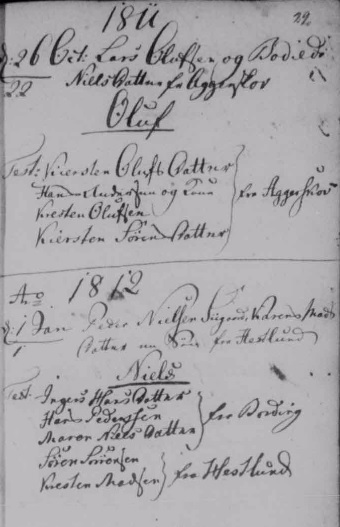 1811
22
d: 26 Oct: Lars Olufsen og Bodil
22
Niels Datter fra Aggerskov
Oluf
Test: Kiersten Olufs Datter
Hans Andersen og Kone
Kresten Olufsen
fra Aggerskov
Kiersten Sørens Datter
Ao 1812
d: 1 Jan Peder Nielsen Karen Mads
1
Datter en Søn fra Hestlund
Niels
Test: Ingers Hans Datter
Hans Pedersen
fra Bording
Maren Niels Datter
Søren Sørensen
Kresten Madsen
fra Hestlund